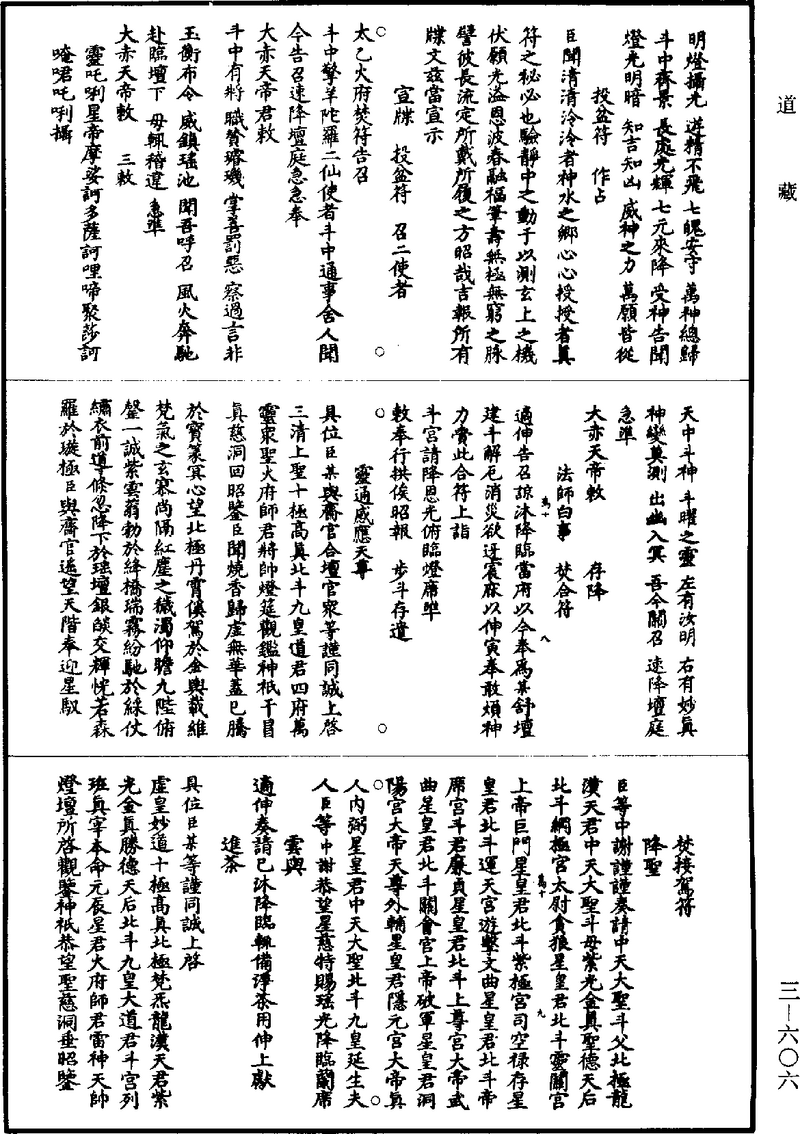 道藏
明燈攝光 逆精不飛 七魄安守 萬神總歸
斗中齊景 長處光輝 七元來降 受神告開
燈光明暗 知吉知凶 威神之力 萬願皆從
投盆符 作占
臣聞清清泠泠者神水之鄉心心授授者眞
符之秘必也驗靜中之動于以測玄上之機
伏願光溢恩波春融福筆壽無極無窮之脉
譬彼長流定所戴所履之方昭哉吉報所有
牒文兹當宣示
宣牒 投盆符 召二使者
太乙火府焚符告召
斗中擎羊陀羅二仙使者斗中通事舍人聞
今告召速降壇庭急急奉
大赤天帝君敕
斗中有將 職贊璿璣 掌善罰惡 察過言非
玉衡布令 威鎮瑤池 聞吾呼召 風火奔馳
赴臨壇下 毋輒稽違 急準
大赤天帝敕 三敕
靈吒唎星帝摩娑訶多薩訶哩啼聚莎訶
唵㖗吒唎攝
天中斗神 斗曜之靈 左有汝明 右有妙眞
神變莫測 出幽入冥 吾今關召 速降壇庭
急準
大赤天帝敕 存降
法師白事 焚合符
適伸告召諒沐降臨當府以今奉爲某舒壇
建斗解厄消災欲迓宸庥以伸寅奉敢煩神
力賫此合符上詣
斗宮請降恩光俯臨燈席準
敕奉行拱俟昭報 步斗存遣
靈通感應天尊
具位臣某與齋官合壇官衆等謹同誠上啓
三清上聖十極高眞北斗九皇道君四府萬
靈衆聖火府師君將帥燈筵觀鑑神祇干冒
眞慈洞回昭鑒臣聞燒香歸虛無華蓋已騰
於寶篆冥心望北極丹霄傒駕於金輿載維
梵氣之玄寥尚隔紅塵之穢濁仰瞻九陛俯
罄一誠紫雲蓊勃於絳橋瑞霧紛馳於綵仗
繡衣前導倏忽降下於瑤壇銀燄交輝恍若森
羅於璇極臣與齋官遙望天階奉迎星馭
焚接駕符
降聖
臣等中謝謹謹奏請中天大聖斗父北極龍
漢天君中天大聖斗母紫光金眞聖德天后
北斗綱極宮太尉貪狼星皇君北斗靈關宮
上帝巨門星皇君北斗紫極宮司空祿存星
皇君北斗運天宮遊擊文曲星皇君北斗帝
席宮斗君廉貞星皇君北斗上尊宮大帝武
曲星皇君北斗關會宮上帝破軍星皇君洞
陽宮大帝天尊外輔星皇君隱元宮大帝眞
人內弼星皇君中天大聖北斗九皇延生夫
人臣等中謝恭望星慈特賜瑤光降臨蘭席
雲輿
適伸奏請已沐降臨輒備淨茶用伸上獻
進茶
具位臣某等謹同誠上啓
虛皇妙道十極高眞北極梵炁龍漢天君紫
光金眞勝德天后北斗九皇大道君斗宮列
班眞宰本命元辰星君火府師君雷神天帥
燈壇所啓觀鑒神祇恭望聖慈洞垂昭鑒
三—六〇六